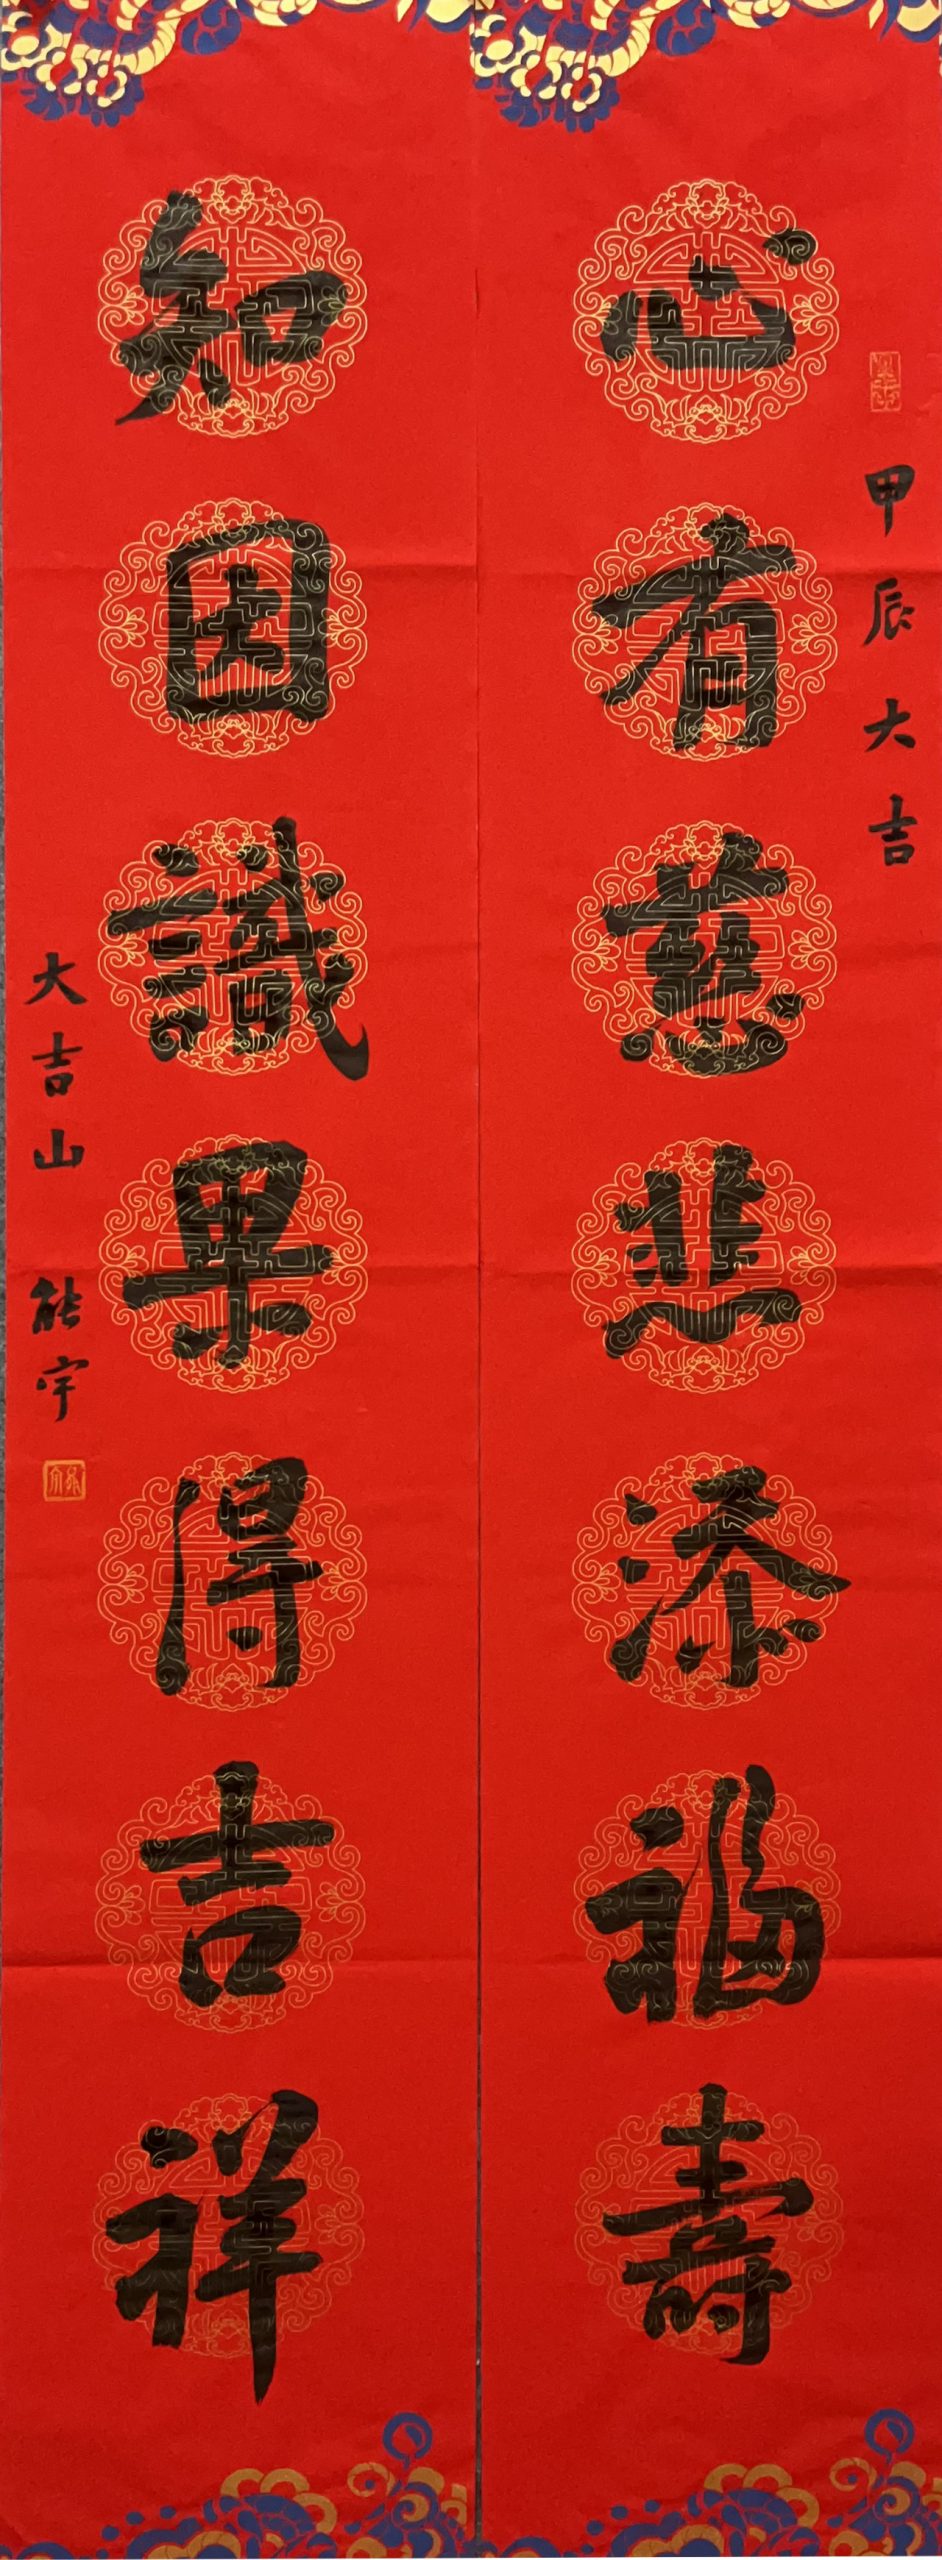 甲辰大吉
心有慈悲添福壽
知因識果得吉祥
大吉山 能宇